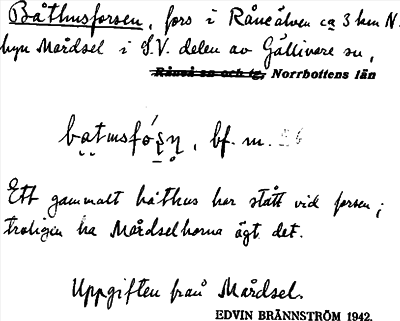 Båthusforsen, fors i Råneälven ca 3 km N.
byn Mårdsel i S.V. delen av Gällivare sn,
Råneå sn och tg, Norrbottens län
ba̤tmsfó̤s̤n̥, bf. m.
Ett gammalt båthus har stått vid forsen;
troligen ha Mårdselborna ägt det.
Uppgiften från Mårdsel.
EDVIN BRÄNNSTRÖM 1942.